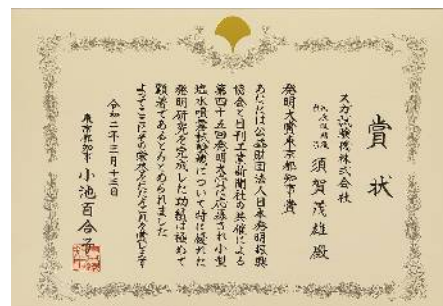 賞状
スガ試験機株式会社
代表取締役
須賀茂雄殿
発明大賞東京都知事賞
あなたは公益財団法人日本発明振興
協会と日刊工業新聞社の共催による
第四十五回発明大賞に応募され小型
塩水噴霧試験機について特に優れた
発明研究を完成した功績は極めて
顕著であるとみとめられました
よってここにその栄誉をたたえこれを賞します
令和二年三月十三日
東京都知事 小池百合子